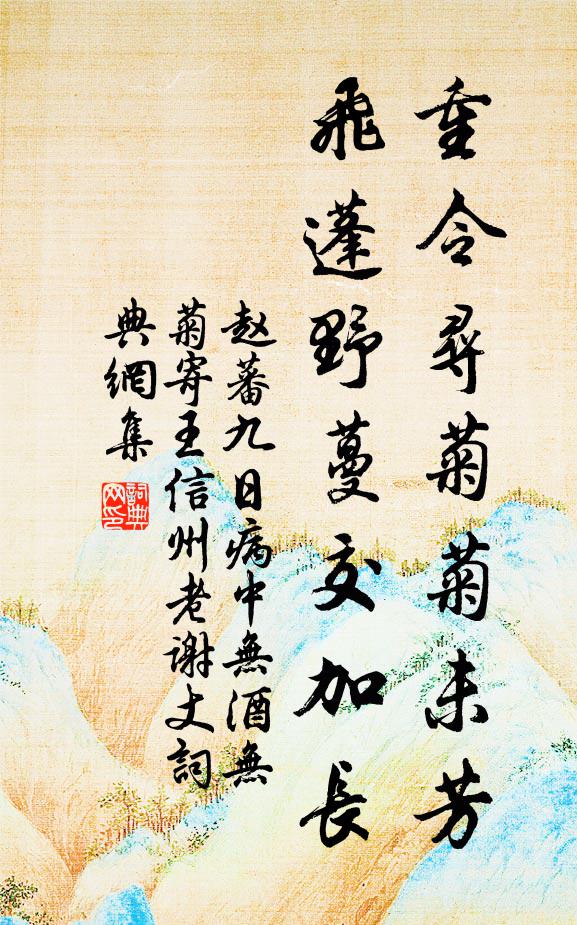 重令尋菊菊未芳
飛蓬野蔓交加長
赵蕃九日病中無酒無
菊寄王信州老谢丈詞
典網集
詞典
网印